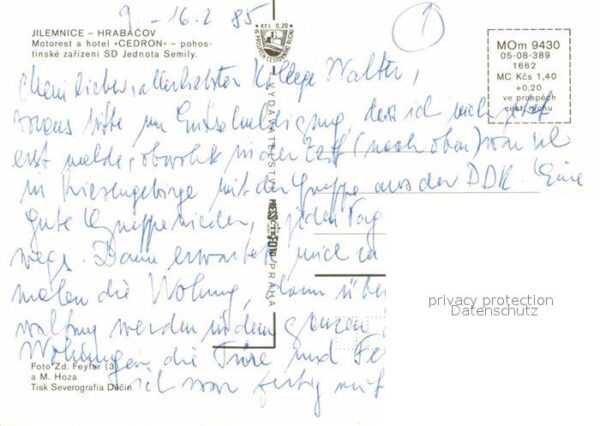 9. - 16.2 85
1
JILEMNICE – HRABAČOV
Motorest a hotel «CEDRON» – pohos-
tinské zařízení SD Jednota Semily.
Kčs 0,20
VE PROSPĚCH CESTOVNÍHO RUCHU
MOm 9430
05-08-389
1662
MC Kčs 1,40
+0,20
ve prospěch
cest. ruchu
Mein lieber, allerliebster Kollege Walter,
voraus bitte um Entschuldigung dass ich mich jetzt
erst melde, obwohl in der Zeit (nach oben) war ich
in Riesengebirge mit der Gruppe aus der DDR. Eine
gute Gruppe wieder, jeden Tag
wegs. Dann erwartete mich zu
malen die Wohnung, dann über
waltung werden in dem ganzen
Wohnungen die Türe und Fe
ich war fertig mit
VYDAVATELSTVÍ
PRESSFOTO
PRAHA
privacy protection
Datenschutz
Foto Zd. Feyfar (3)
a M. Hoza
Tisk Severografia Děčín